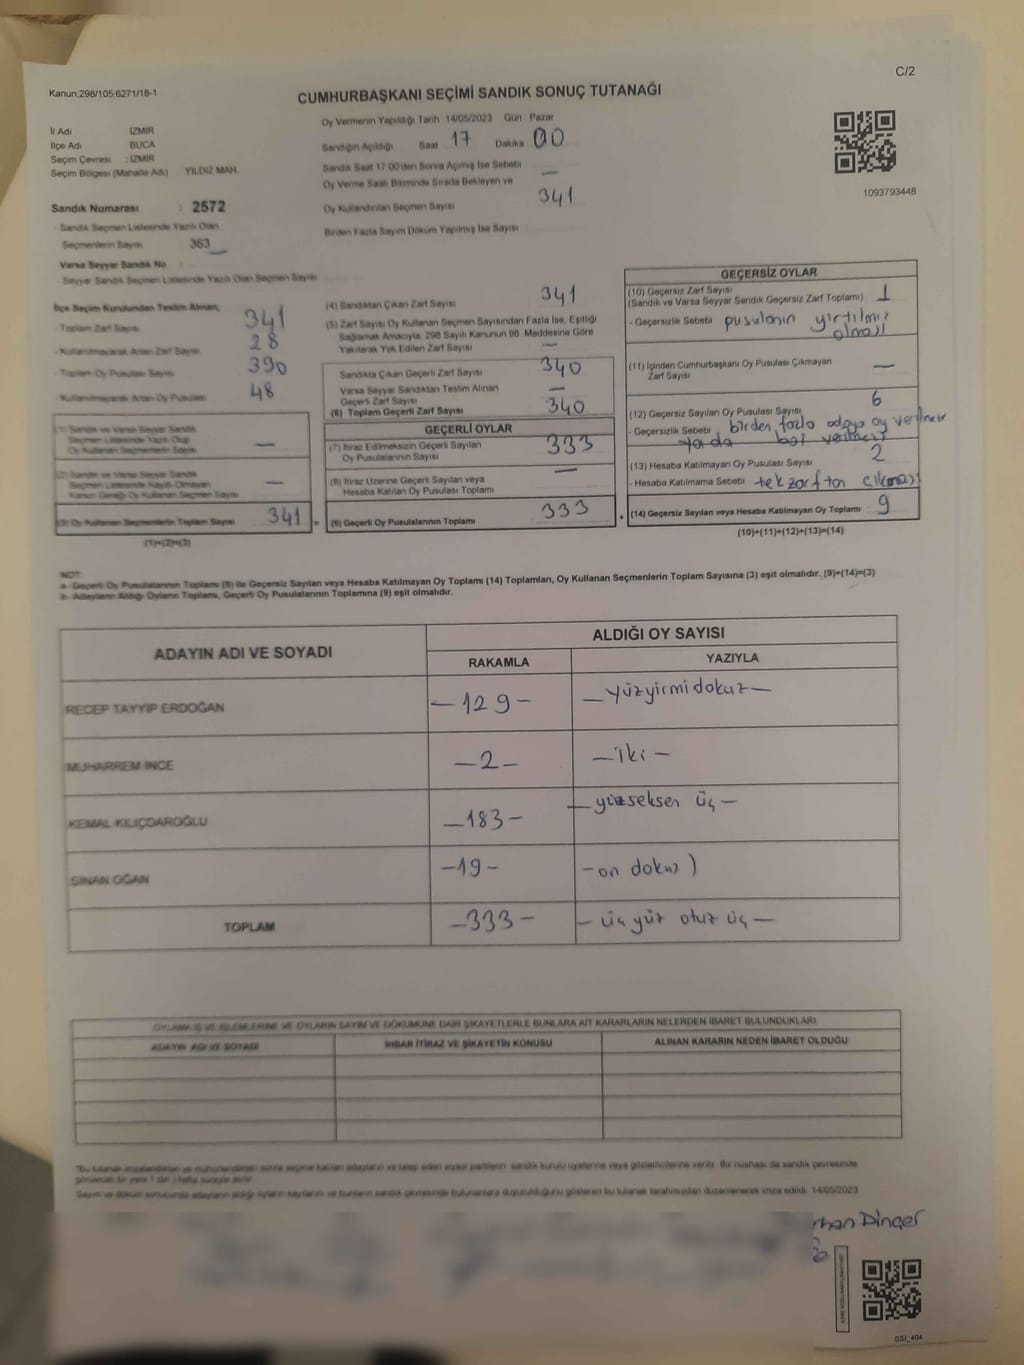 C/2
Kanun:298/105;6271/18-1
CUMHURBAŞKANI SEÇİMİ SANDIK SONUÇ TUTANAĞI
Oy Vermenin Yapıldığı Tarih :14/05/2023 Gün Pazar
İl Adı İZMİR
İlçe Adı BUCA
Seçim Çevresi : İZMİR
Seçim Bölgesi (Mahalle Adı) YILDIZ MAH.
Sandığın Açıldığı Saat 17 Dakika 00
Sandık Saat 17:00'den Sonra Açılmış İse Sebebi
Oy Verme Saati Bitiminde Sırada Bekleyen ve —
Oy Kullandırılan Seçmen Sayısı 341
Birden Fazla Sayım Döküm Yapılmış İse Sayısı
1093793448
Sandık Numarası : 2572
- Sandık Seçmen Listesinde Yazılı Olan
Seçmenlerin Sayısı : 363
Varsa Seyyar Sandık No
- Seyyar Sandık Seçmen Listesinde Yazılı Olan Seçmen Sayısı
İlçe Seçim Kurulundan Teslim Alınan;
- Toplam Zarf Sayısı 341
- Kullanılmayarak Artan Zarf Sayısı 28
- Toplam Oy Pusulası Sayısı 390
- Kullanılmayarak Artan Oy Pusulası 48
(1) Sandık ve Varsa Seyyar Sandık
Seçmen Listesinde Yazılı Olup
Oy Kullanan Seçmenlerin Sayısı —
(2) Sandık ve Varsa Seyyar Sandık
Seçmen Listesinde Kayıtlı Olmayan
Kanun Gereği Oy Kullanan Seçmen Sayısı —
(3) Oy Kullanan Seçmenlerin Toplam Sayısı 341 =
(1)+(2)=(3)
(4) Sandıktan Çıkan Zarf Sayısı 341
(5) Zarf Sayısı Oy Kullanan Seçmen Sayısından Fazla İse, Eşitliği
Sağlamak Amacıyla, 298 Sayılı Kanunun 98. Maddesine Göre
Yakılarak Yok Edilen Zarf Sayısı —
Sandıkta Çıkan Geçerli Zarf Sayısı 340
Varsa Seyyar Sandıktan Teslim Alınan
Geçerli Zarf Sayısı —
(6) Toplam Geçerli Zarf Sayısı 340
GEÇERLİ OYLAR
(7) İtiraz Edilmeksizin Geçerli Sayılan
Oy Pusulalarının Sayısı 333
(8) İtiraz Üzerine Geçerli Sayılan veya
Hesaba Katılan Oy Pusulası Toplamı —
(9) Geçerli Oy Pusulalarının Toplamı 333 +
GEÇERSİZ OYLAR
(10) Geçersiz Zarf Sayısı
(Sandık ve Varsa Seyyar Sandık Geçersiz Zarf Toplamı) 1
- Geçersizlik Sebebi pusulanın yırtılmış
olması
(11) İçinden Cumhurbaşkanı Oy Pusulası Çıkmayan
Zarf Sayısı —
(12) Geçersiz Sayılan Oy Pusulası Sayısı 6
- Geçersizlik Sebebi birden fazla adaya oy verilmesi
ya da boş verilmesi
(13) Hesaba Katılmayan Oy Pusulası Sayısı 2
- Hesaba Katılmama Sebebi tek zarftan çıkması
(14) Geçersiz Sayılan veya Hesaba Katılmayan Oy Toplamı 9
(10)+(11)+(12)+(13)=(14)
NOT:
a- Geçerli Oy Pusulalarının Toplamı (9) ile Geçersiz Sayılan veya Hesaba Katılmayan Oy Toplamı (14) Toplamları, Oy Kullanan Seçmenlerin Toplam Sayısına (3) eşit olmalıdır. (9)+(14)=(3)
b- Adayların Aldığı Oyların Toplamı, Geçerli Oy Pusulalarının Toplamına (9) eşit olmalıdır.
ADAYIN ADI VE SOYADI
ALDIĞI OY SAYISI
RAKAMLA YAZIYLA
RECEP TAYYİP ERDOĞAN -129- -yüzyirmidokuz-
MUHARREM İNCE -2- -iki-
KEMAL KILIÇDAROĞLU -183- -yüzseksen üç-
SİNAN OĞAN -19- -on dokuz)
TOPLAM -333- - üç yüz otuz üç -
OYLAMA İŞ VE İŞLEMLERİNE VE OYLARIN SAYIM VE DÖKÜMÜNE DAİR ŞİKAYETLERLE BUNLARA AİT KARARLARIN NELERDEN İBARET BULUNDUKLARI
ADAYIN ADI VE SOYADI İHBAR İTİRAZ VE ŞİKAYETİN KONUSU ALINAN KARARIN NEDEN İBARET OLDUĞU
rhan Dinçer
SSI_404